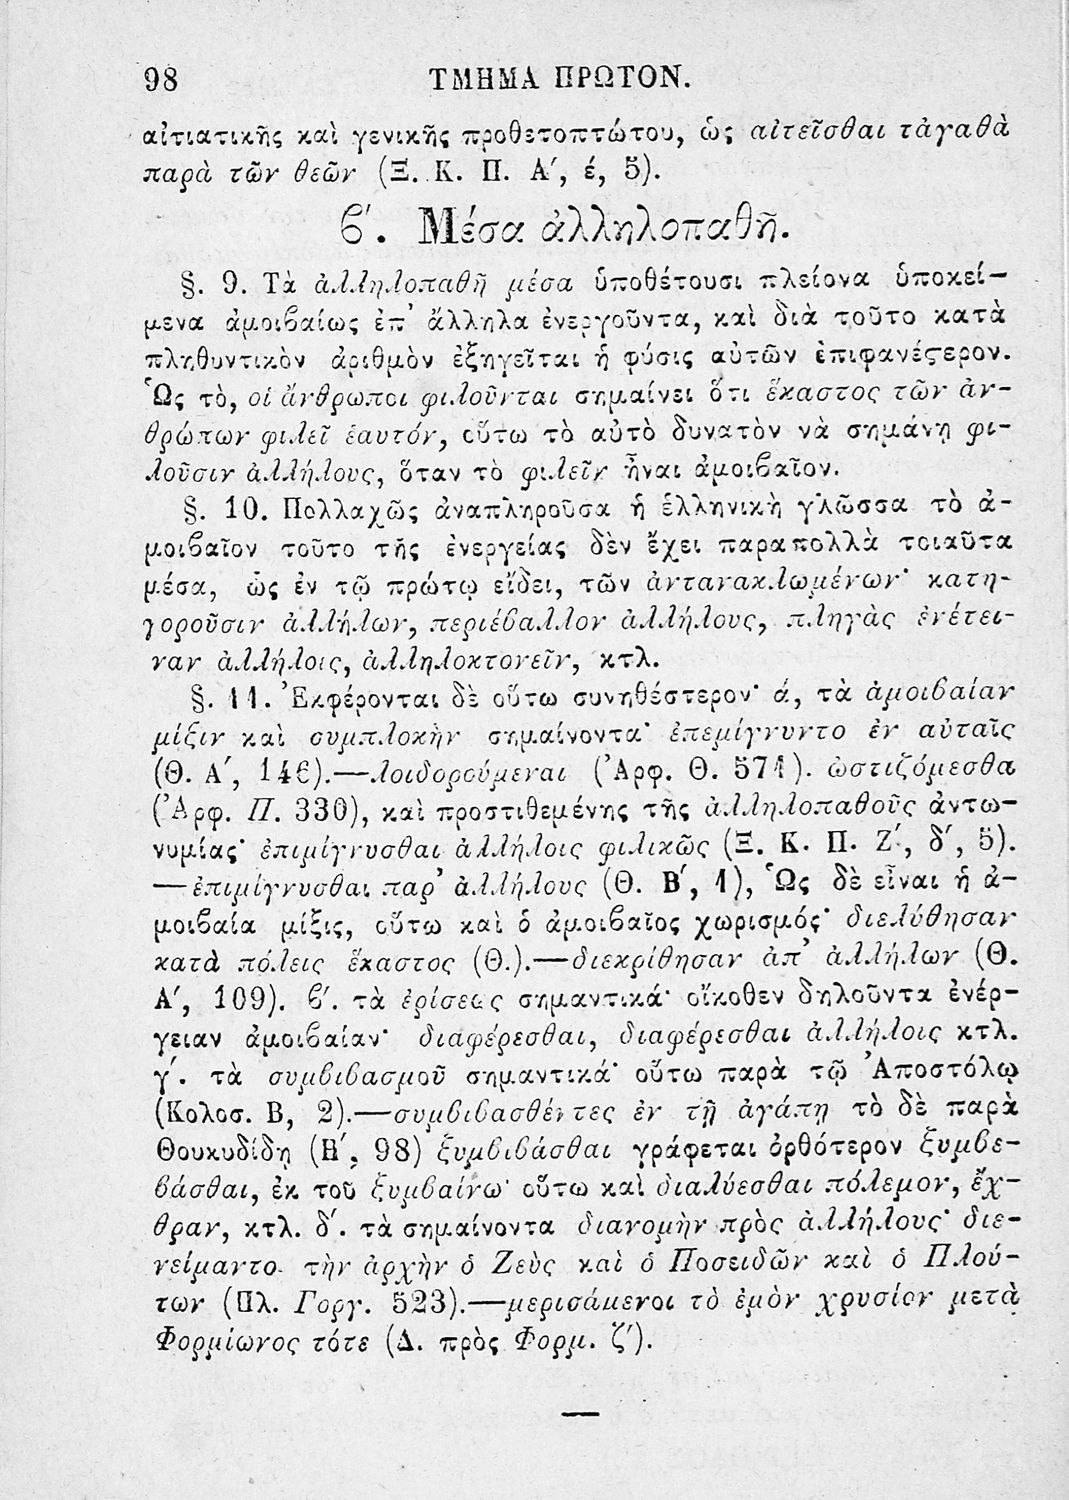 98 ΤΜΗΜΑ ΠΡΩΤΟΝ.
αἰτιατικῆς καὶ γενικῆς προθετοπτώτου, ὡς αἰτεῖσθαι τἀγαθὰ
παρὰ τῶν θεῶν (Ξ. Κ. Π. Α΄, έ, 5).
ϐ΄. Μέσα ἀλληλοπαθῆ.
§. 9. Τὰ ἀλληλοπαθῆ μέσα ὑποθέτουσι πλείονα ὑποκεί-
μενα ἀμοιϐαίως ἐπ’ ἄλληλα ἐνεργοῦντα, καὶ διὰ τοῦτο κατὰ
πληθυντικὸν ἀριθμὸν ἐξηγεῖται ἡ φύσις αὐτῶν ἐπιφανέςερον.
Ὡς τὸ, οἱ ἄνθρωποι φιλοῦνται σημαίνει ὅτι ἕκαστος τῶν ἀν-
θρώπων φιλεῖ ἑαυτόν, οὕτω τὸ αὐτὸ δυνατὸν νὰ σημάνῃ φι-
λοῦσιν ἀλλήλους, ὅταν τὸ φιλεῖν ἦναι ἀμοιϐαῖον.
§. 10. Πολλαχῶς ἀναπληροῦσα ἡ ἑλληνικὴ γλῶσσα τὸ ἀ-
μοιϐαῖον τοῦτο τῆς ἐνεργείας δὲν ἔχει παραπολλὰ τοιαῦτα
μέσα, ὡς ἐν τῷ πρώτῳ εἴδει, τῶν ἀντανακλωμένων· κατη-
γοροῦσιν ἀλλήλων, περιέϐαλλον ἀλλήλους, πληγὰς ἐνέτει-
ναν ἀλλήλοις, ἀλληλοκτονεῖν, κτλ.
§. 11. Ἐκφέρονται δὲ οὕτω συνηθέστερον· ά, τὰ ἀμοιϐαίαν
μίξιν καὶ συμπλοκὴν σημαίνοντα· ἐπεμίγνυντο ἐν αὐταῖς
(Θ. Α΄, 146).—λοιδορούμεναι (Ἀρφ. Θ. 571). ὠστιζόμεσθα
(Ἀρφ. Π. 330), καὶ προστιθεμένης τῆς ἀλληλοπαθοῦς ἀντω-
νυμίας· ἐπιμίγνυσθαι ἀλλήλοις φιλικῶς (Ξ. Κ. Π. Ζ΄, δ΄, 5).
—ἐπιμίγνυσθαι παρ’ ἀλλήλους (Θ. Β΄, 1), Ὡς δὲ εἶναι ἡ ἀ-
μοιϐαία μίξις, οὕτω καὶ ὁ ἀμοιϐαῖος χωρισμός· διελύθησαν
κατὰ πόλεις ἕκαστος (Θ.).—διεκρίθησαν ἀπ’ ἀλλήλων (Θ.
Α΄, 109). ϐ΄. τὰ ἐρίσεως σημαντικά· οἴκοθεν δηλοῦντα ἐνέρ-
γειαν ἀμοιϐαίαν· διαφέρεσθαι, διαφέρεσθαι ἀλλήλοις κτλ.
γ΄. τὰ συμϐιϐασμοῦ σημαντικά· οὕτω παρὰ τῷ Ἀποστόλῳ
(Κολοσ. Β, 2).—συμϐιϐασθέντες ἐν τῇ ἀγάπῃ τὸ δὲ παρὰ
Θουκυδίδῃ (Β΄, 98) ξυμϐιϐάσθαι γράφεται ὀρθότερον ξυμϐε-
ϐάσθαι, ἐκ τοῦ ξυμϐαίνω· οὕτω καὶ διαλύεσθαι πόλεμον, ἔχ-
θραν, κτλ. δ΄. τὰ σημαίνοντα διανομὴν πρὸς ἀλλήλους· διε-
νείμαντο τὴν ἀρχὴν ὁ Ζεὺς καὶ ὁ Ποσειδῶν καὶ ὁ Πλού-
των (Πλ. Γοργ. 523).—μερισάμενοι τὸ ἐμὸν χρυσίον μετὰ
Φορμίωνος τότε (Δ. πρὸς Φορμ. ζ΄).